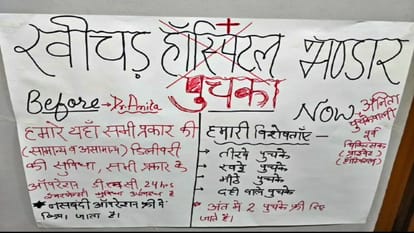 खीचड़ हॉस्पिटल भण्डार
पुचका
Before → Dr. Anita
Now. अनिता
पूर्व
चिकित्सक
हमारे यहाँ सभी प्रकार की
(सामान्य व असामान्य) डिलीवरी
की सुविधा, सभी प्रकार के
ऑपरेशन, डी एण्ड सी, 24 hrs
• नसबंदी ऑपरेशन फ्री में
किया जाता है।
हमारी विशेषताएँ -
→ तीखे पुचके
→ खट्टे पुचके
→ मीठे पुचके
→ दही वाले पुचके
• अंत में 2 पुचके फ्री दिए
जाते है।